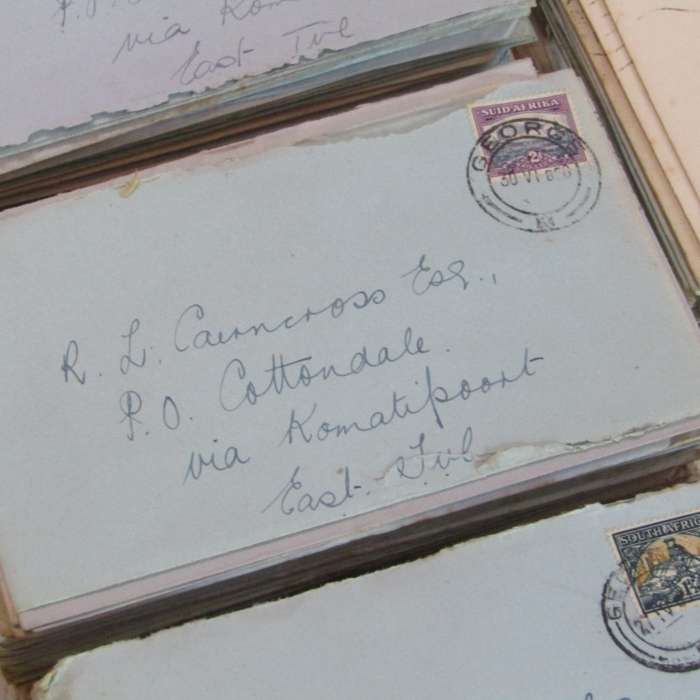 P.O.
via
East Tvl
SUID-AFRIKA
GEORGE
2
30 VI
R. L. Cairncross Esq.,
P.O. Cottondale.
via Komatipoort
East. Tvl
SOUTH AFRICA